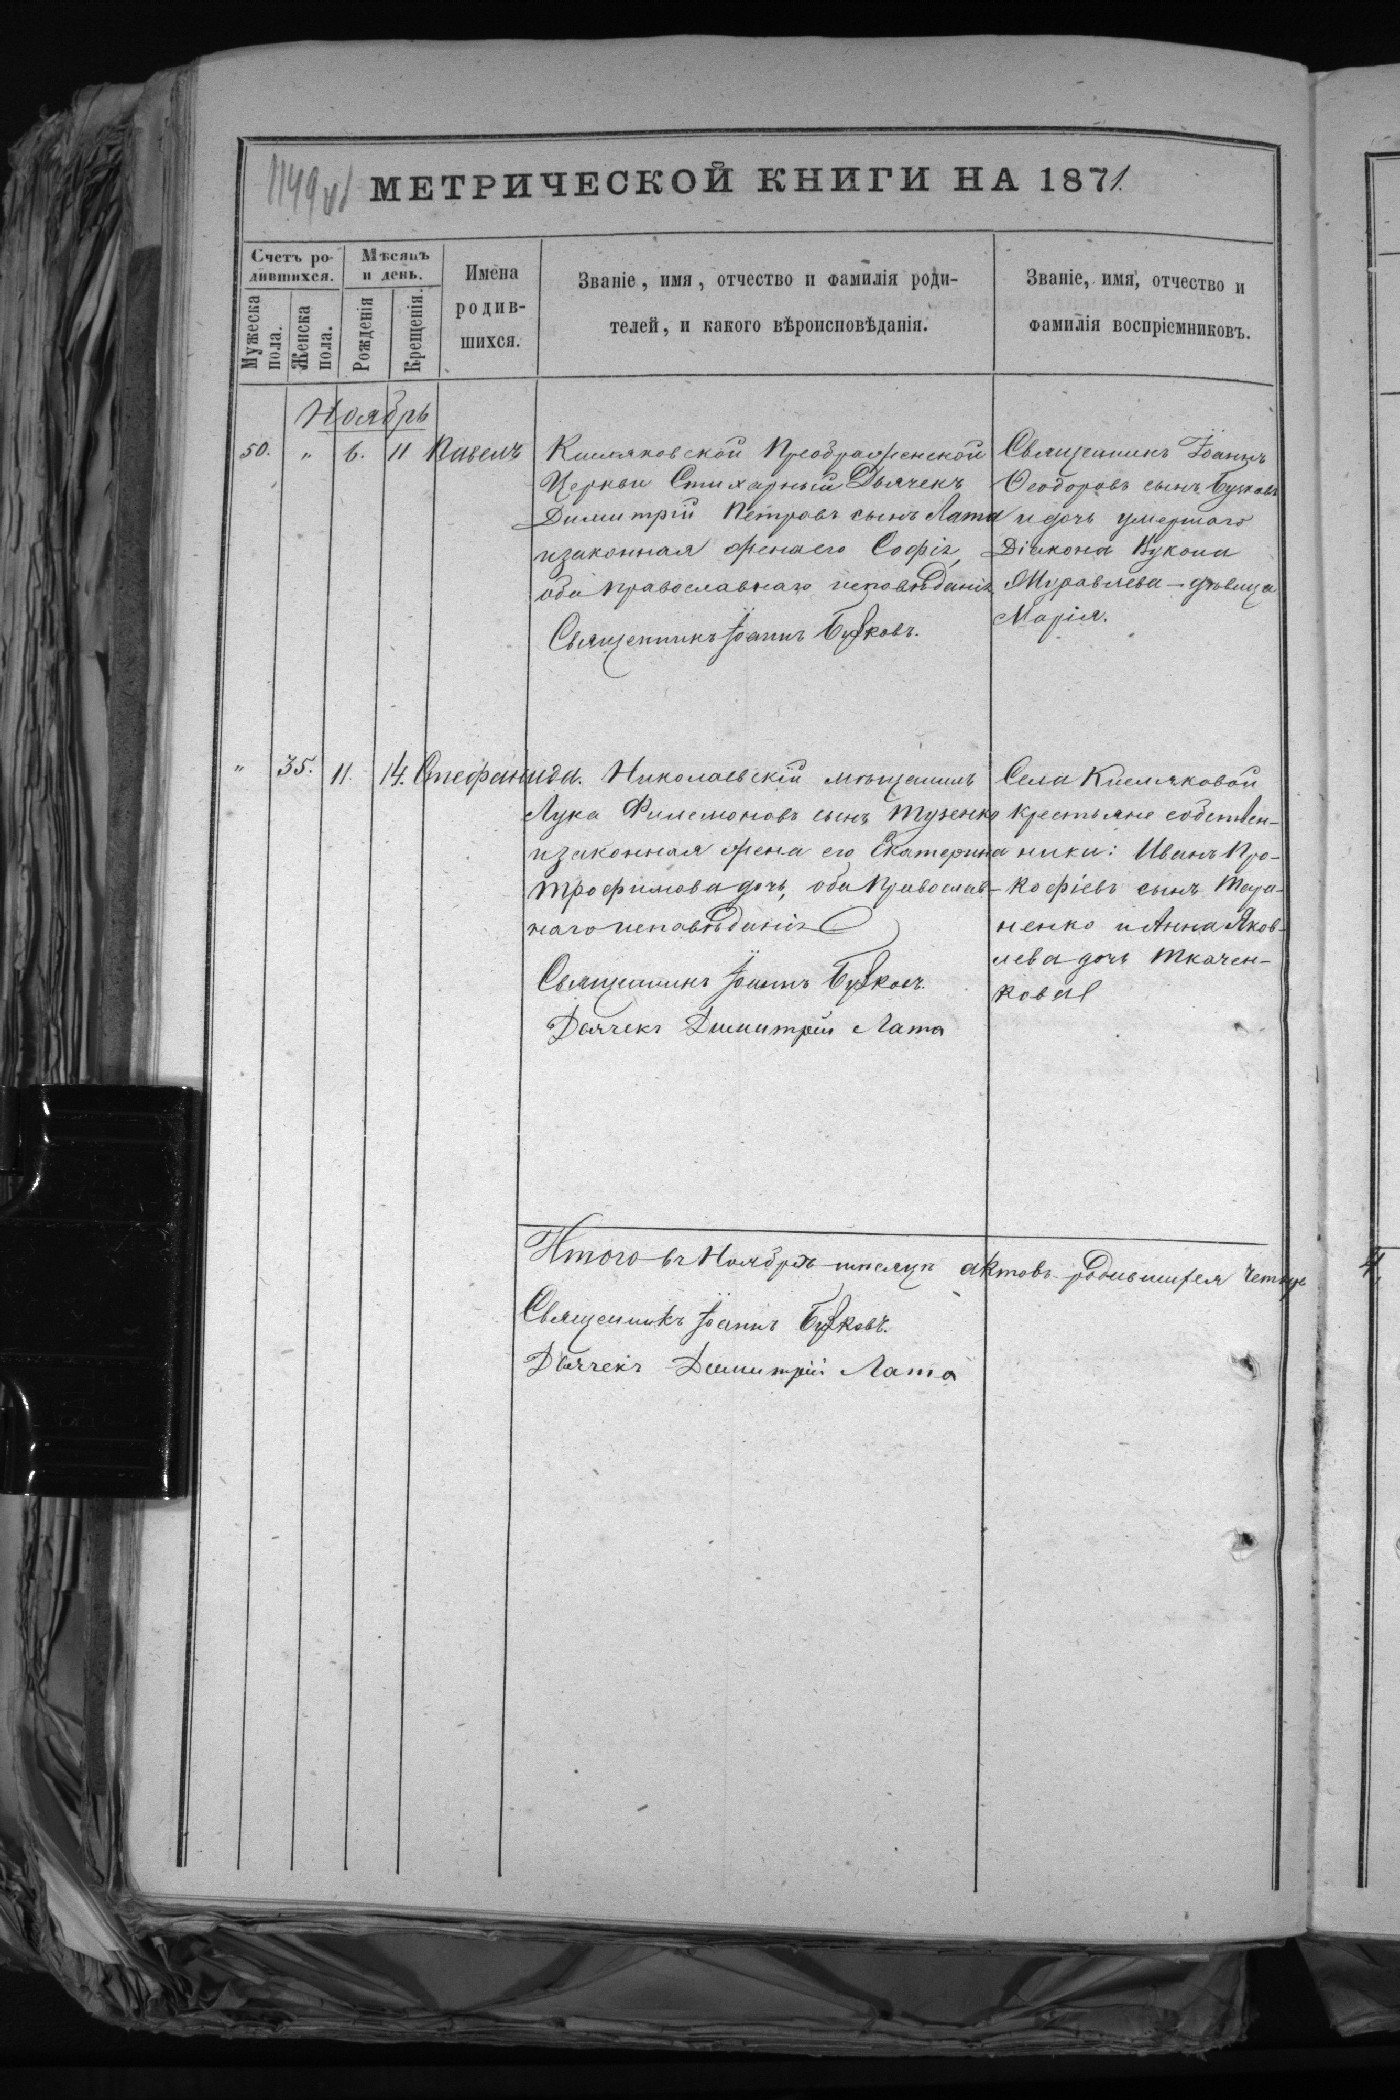 1149 об
МЕТРИЧЕСКОЙ КНИГИ НА 1871.
Счетъ ро-
дившихся.
Мѣсяцъ
и день.
Мужеска
пола.
Женска
пола.
Рожденія
Крещенія.
Имена
родив-
шихся.
Званіе, имя, отчество и фамилія роди-
телей, и какого вѣроисповѣданія.
Званіе, имя, отчество и
фамилія воспріемниковъ.
Ноябрь
50. " 6. 11 Павелъ
Кисляковской Преображенской
Церкви Стихарный Дьячекъ
Димитрій Петровъ сынъ Лата
и законная жена его Софія,
оба православнаго исповѣданія
Священникъ Іоаннъ Бужковъ.
Священникъ Іоаннъ
Ѳеодоровъ сынъ Бужковъ
и дочь умершаго
Діакона Вукола
Муравлева - дѣвица
Марія.
" 35. 11. 14. Стефанида.
Николаевскій мѣщанинъ
Лука Филимоновъ сынъ Тузенко
и законная жена его Екатерина
Трофимова дочь, оба Православ-
наго исповѣданія
Священникъ Іоаннъ Бужковъ.
Дьячекъ Димитрій Лата
Села Кисляковой
крестьяне собствен-
ники: Иванъ Про-
кофіевъ сынъ Тара-
ненко и Анна Яков-
лева дочь Ткачен-
кова
Итого въ Ноябрѣ мѣсяцѣ актовъ родившихся четыре
Священникъ Іоаннъ Бужковъ.
Дьячекъ Димитрій Лата